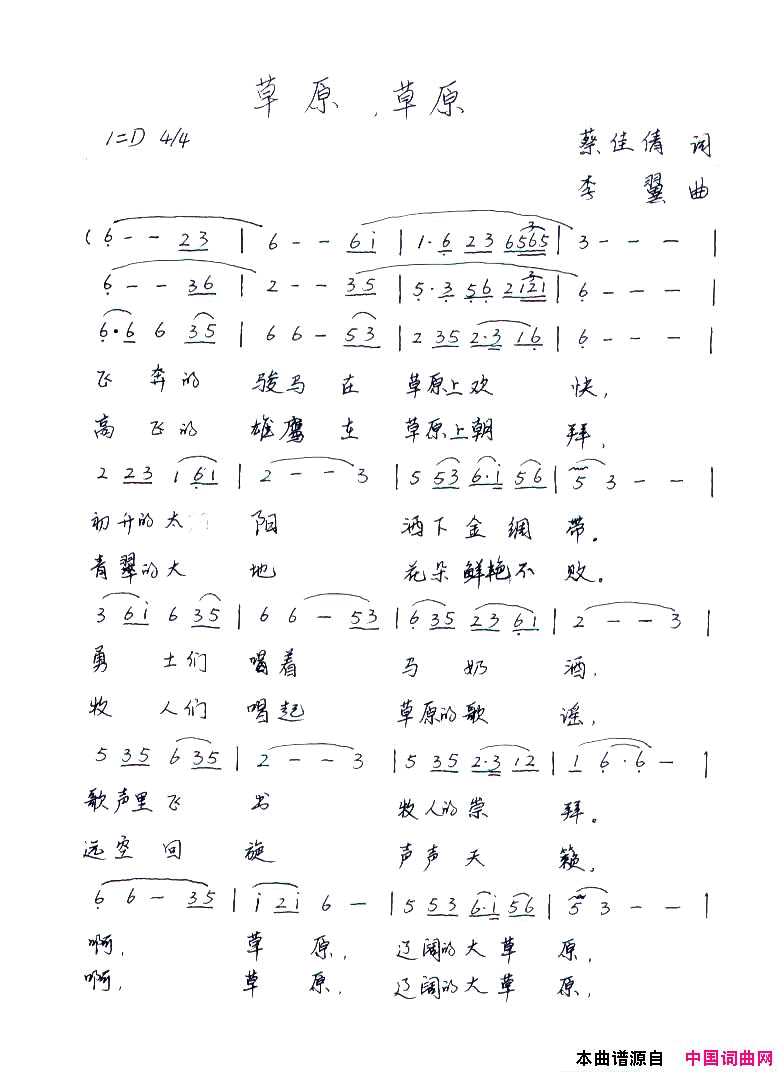 草原，草原
1=D 4/4
蔡佳倩 词
李翼 曲
( 6 - - 23 | 6 - - 6i | 1·6 23 6565 | 3 - - - |
6 - - 36 | 2 - - 35 | 5·3 56 2121 | 6 - - - |
6·6 6 35 | 6 6 - 53 | 2 35 2·3 16 | 6 - - - |
飞奔的 骏马在 草原上欢 快，
高飞的 雄鹰在 草原上朝 拜，
2 23 1 61 | 2 - - 3 | 5 53 6·i 56 | 5 3 - - |
初升的太 阳 洒下金绸 带。
青翠的大 地 花朵鲜艳不 败。
3 6i 6 35 | 6 6 - 53 | 6 35 23 61 | 2 - - 3 |
勇士们 喝着 马奶 酒，
牧人们 唱起 草原的歌 谣，
5 35 6 35 | 2 - - 3 | 5 35 2·3 12 | 1 6·6 - |
歌声里飞 出 牧人的崇 拜。
远空回 旋 声声天 籁，
6 6 - 35 | i 2i 6 - | 5 53 6·i 56 | 5 3 - - |
啊， 草原， 辽阔的大草 原，
啊， 草原， 辽阔的大草 原，
本曲谱源自 中国词曲网